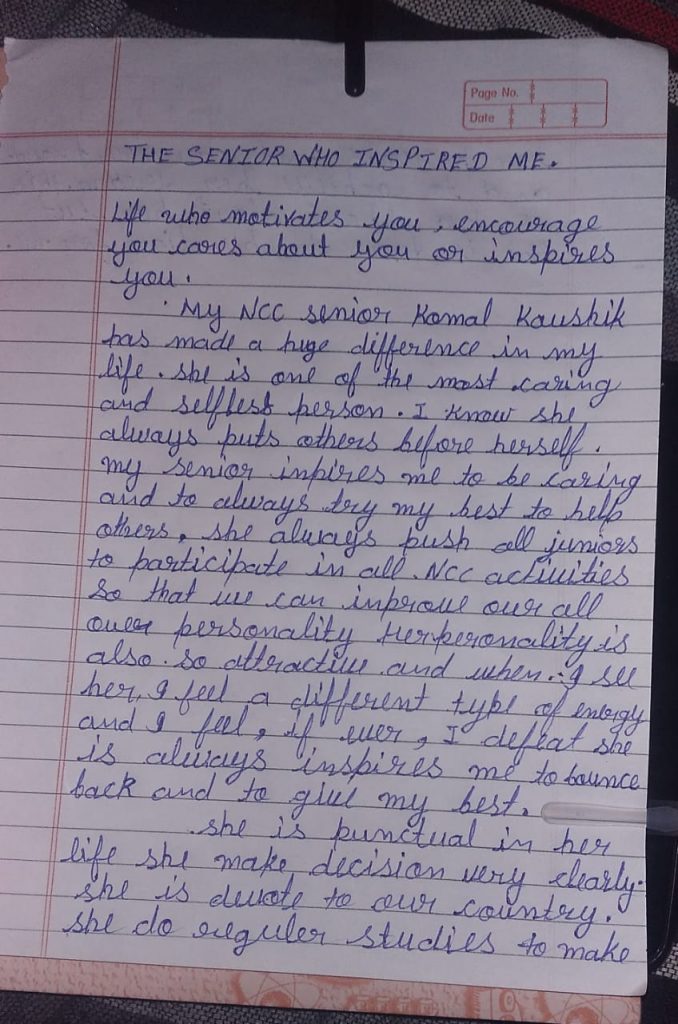 Page No.
Date
THE SENIOR WHO INSPIRED ME.
Life who motivates you, encourage
you cares about you or inspires
you.
My NCC senior Komal Kaushik
has made a huge difference in my
life. she is one of the most caring
and selfless person. I know she
always puts others before herself.
my senior inpires me to be caring
and to always try my best to help
others, she always push all juniors
to participate in all NCC activities
So that we can inprove our all
over personality Herperonality is
also so attractive and when I see
her, I feel a different type of energy
and I feel, if ever, I defeat she
is always inspires me to bounce
back and to give my best.
she is punctual in her
life she make decision very clearly.
she is devote to our country.
she do reguler studies to make